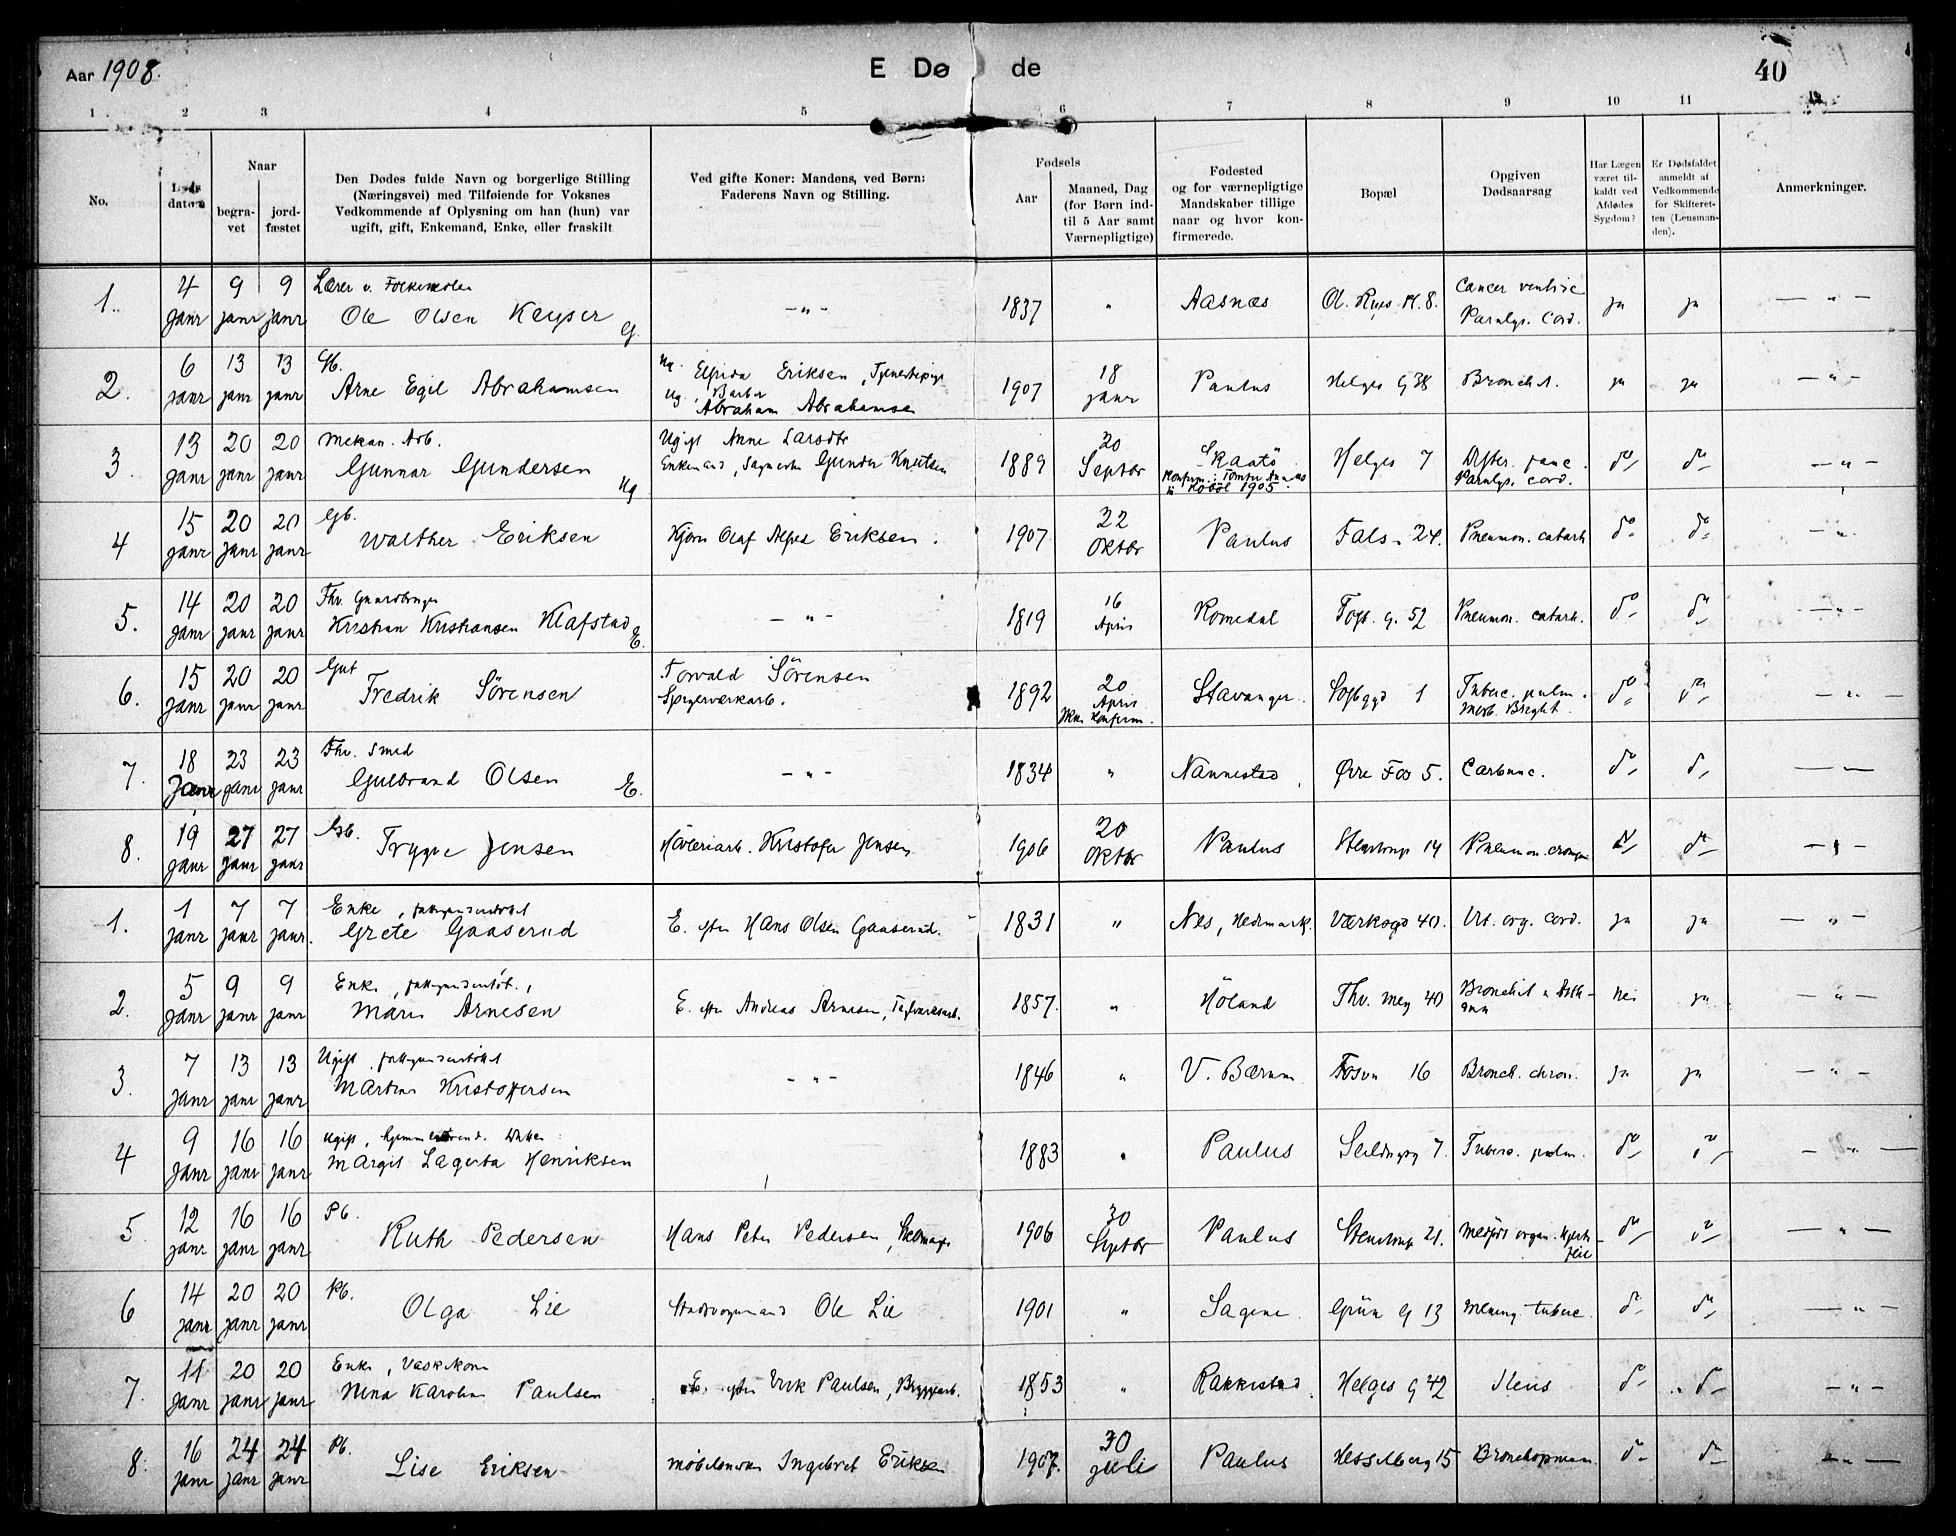 Aar 1908.
E Dø de
40
1 2 3 4 5 6 7 8 9 10 11 12
No.
Døds datum
Naar
begra-
vet
jord-
fæstet
Den Dødes fulde Navn og borgerlige Stilling
(Næringsvei) med Tilføiende for Voksnes
Vedkommende af Oplysning om han (hun) var
ugift, gift, Enkemand, Enke, eller fraskilt
Ved gifte Koner: Mandens, ved Børn:
Faderens Navn og Stilling.
Fødsels
Aar
Maaned, Dag
(for Børn ind-
til 5 Aar samt
Værnepligtige)
Fødested
og for værnepligtige
Mandskaber tillige
naar og hvor kon-
firmerede.
Bopæl
Opgiven
Dødsaarsag
Har Lægen
været til-
kaldt ved
Afdødes
Sygdom?
Er Dødsfaldet
anmeldt af
Vedkommende
for Skifteret-
ten (Lensman-
den).
Anmerkninger.
1. 4 Janr 9 Janr 9 Janr Lærer v. Folkeskolen
Ole Olsen Keyser G. — " — 1837 " Aasnæs Ol. Ryes Pl. 8. Cancer ventric
Paralys. Cord. ja ja — " —
2. 6 Janr 13 Janr 13 Janr Gb.
Arne Egil Abrahamsen Ug. Elfrida Eriksen, Tjenestepige
Ug. Barber
Abraham Abrahamsen 1907 18 Janr Paulus Helges G 38 Bronchit. ja ja — " —
3. 13 Janr 20 Janr 20 Janr Mekan. Arb.
Gunnar Gundersen Ug Ugift Anne Larsdtr
Enkemand, Gunder Knutsen 1889 20 Septbr Skaatö
Konfirm. i
1905. Helges 7
Paralys. cord. do do — " —
4 15 Janr 20 Janr 20 Janr Gb.
Walther Eriksen Kjører Olaf Alfred Eriksen. 1907 22 Oktbr Paulus Fals 24. Pneumon. catarh do do — " —
5. 14 Janr 20 Janr 20 Janr Fhv. Gaardbruger
Kristian Kristiansen Klafstad E. — " — 1819 16 April Romedal Toft. G. 52 Pneumon. catarh. do do — " —
6. 15 Janr 20 Janr 20 Janr Gut
Fredrik Sörensen Torvald Sörensen
Spigerverkarb. 1892 20 April
Ikke konfirm. Stavanger 1 Tuberc. pulm.
Morb. Bright. do do — " —
7. 18 Janr 23 Janr 23 Janr Fhv. Smed
Gulbrand Olsen E. — " — 1834 " Nannestad Øvre Fos 5. Carbunc. do do — " —
8. 19 Janr 27 Janr 27 Janr Gb.
Trygve Jensen Kristofer Jensen 1906 20 Oktbr Paulus Stenstrup 14 Pneumon. croupos do do — " —
1. 1 Janr 7 Janr 7 Janr. Enke, fattigunderstöttet
Grete Gaaserud E. efter Hans Olsen Gaaserud. 1831 " Nes, Hedmark. Værksgd 40. Vit. org. cord. ja ja — " —
2. 5 Janr 9 Janr 9 Janr Enke, fattigunderstöt.,
Maren Arnesen E. efter Andreas Arnesen, Teglværksarb. 1857. " Höland Thv. Mey 40 Bronchit & Asth-
ma nei ja — " —
3. 7 Janr 13 Janr 13 Janr Ugift, fattigunderstöttet
Martine Kristoffersen — " — 1846 " V. Bærum Fosv 16 Bronch. chron. ja ja — " —
4 9 Janr 16 Janr 16 Janr Ugift, hjemmeværend. Datter
Margit Lagerta Henriksen 1883 " Paulus Seildugsg 7. Tuberc. pulm. do do — " —
5 12 Janr 16 Janr 16 Janr Pb.
Ruth Pedersen Hans Peter Pedersen, 1906 30 Septbr Paulus Stenstrup 21. Medfödt organ. Hjerte-
feil do do — " —
6 14 Janr 20 Janr 20 Janr Pb.
Olga Lie Ole Lie 1901 " Sagene. Grün G 13 Mening. tuberc. do do — " —
7. 11 Janr 20 Janr 20 Janr Enke, Vaskekone
Nina Karoline Paulsen E. efter Erik Paulsen, Bryggearb. 1853 " Rakkestad. Helges G 42 Ileus do do — " —
8. 16 Janr 24 Janr 24 Janr Pb.
Lise Eriksen Möbelsnedker Ingebret Eriksen 1907. 30 Juli Paulus Hesselberg 15 Bronchopneum. do do — " —